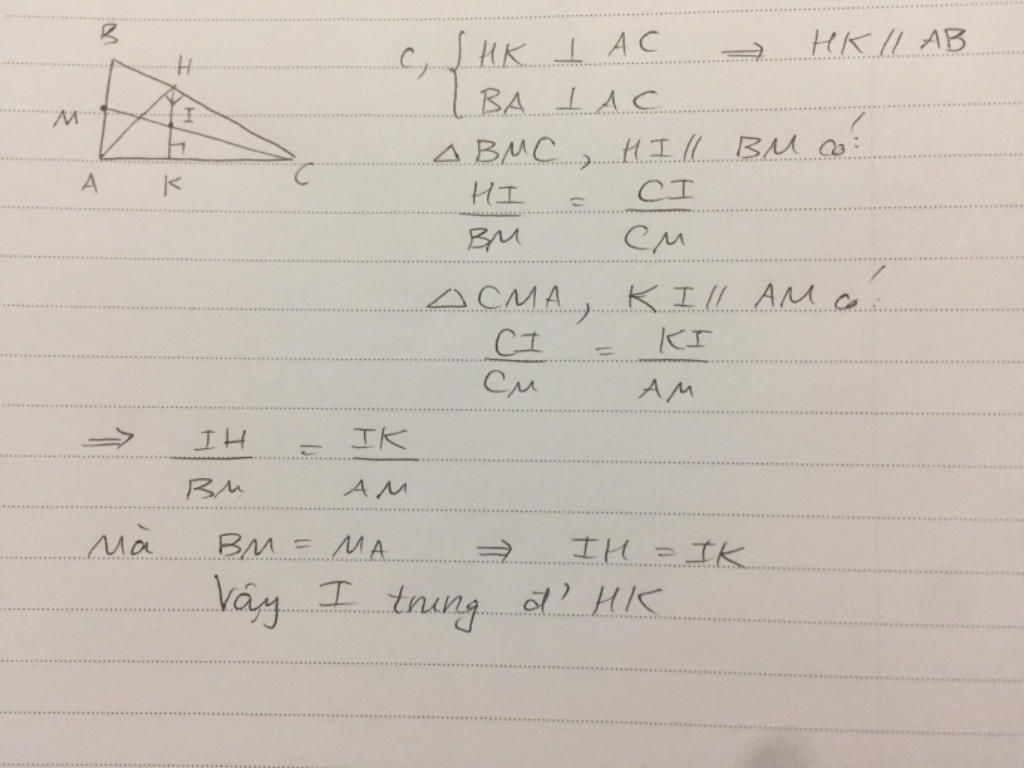 B
H
M
I
A
K
C
c, { HK ⊥ AC ⇒ HK // AB
BA ⊥ AC
△ BMC, HI // BM có:
HI/BM = CI/CM
△ CMA, KI // AM có:
CI/CM = KI/AM
⇒ IH/BM = IK/AM
Mà BM = MA ⇒ IH = IK
Vậy I trung đ' HK